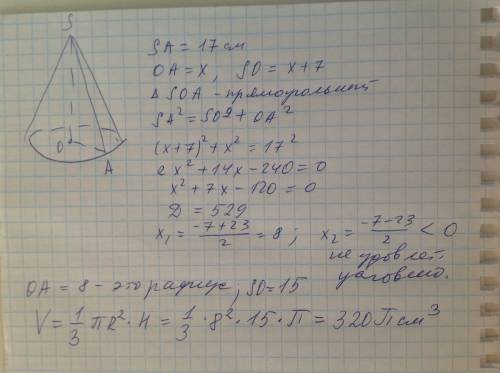 S
O
A
SA = 17 см
OA = x, SO = x+7
Δ SOA - прямоугольный
SA² = SO² + OA²
(x+7)² + x² = 17²
2x² + 14x - 240 = 0
x² + 7x - 120 = 0
D = 529
x₁ = (-7+23)/2 = 8 ; x₂ = (-7-23)/2 < 0
не удовлет.
условию.
OA = 8 - это радиус, SO = 15
V = 1/3 πR² · H = 1/3 · 8² · 15 · П = 320 П см³